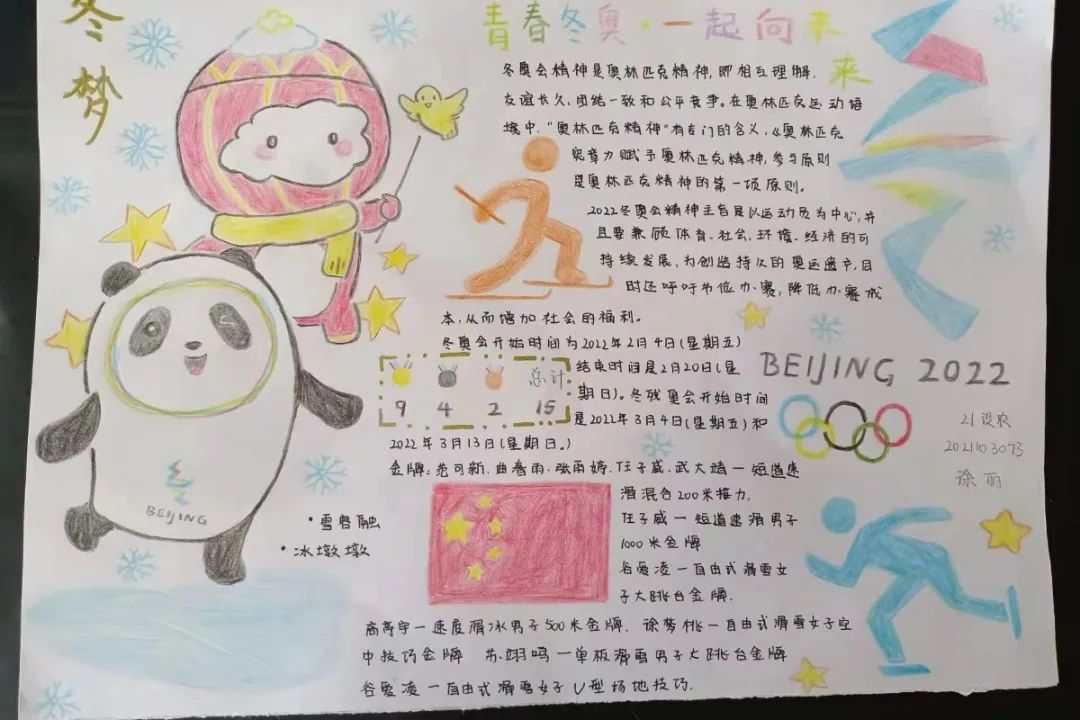 冬
梦
青春冬奥·一起向未
来
冬奥会精神是奥林匹克精神,即相互理解、
友谊长久、团结一致和公平竞争。在奥林匹克运动语
境中,“奥林匹克精神”有专门的含义,《奥林匹克
宪章》赋予奥林匹克精神,参与原则
是奥林匹克精神的第一项原则。
2022冬奥会精神主旨是以运动员为中心,并
且要兼顾体育、社会、环境、经济的可
持续发展,为创造持久的奥运遗产,同
时还呼吁节俭办赛,降低办赛成
本,从而增加社会的福利。
冬奥会开始时间为2022年2月4日(星期五)
结束时间是2月20日(星
期日)。冬残奥会开始时间
是2022年3月4日(星期五)和
2022年3月13日(星期日。)
总计
9 4 2 15
金牌:范可新、曲春雨、张雨婷、任子威、武大靖一短道速
滑混合200米接力.
任子威一短道速滑男子
1000米金牌
谷爱凌一自由式滑雪女
子大跳台金牌.
高亭宇一速度滑冰男子500米金牌. 徐梦桃一自由式滑雪女子空
中技巧金牌 苏翊鸣一单板滑雪男子大跳台金牌
谷爱凌一自由式滑雪女子U型场地技巧.
BEIJING 2022
21设农
2021103073
徐丽
BEIJING
·雪容融
·冰墩墩